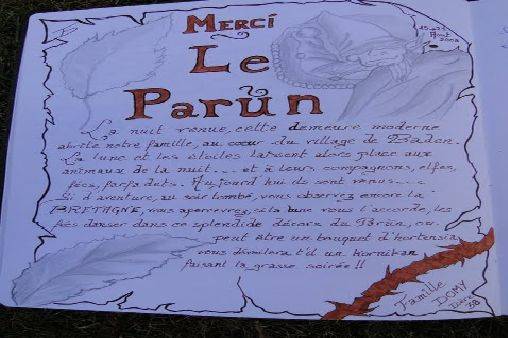 MERCI
15 au 21
Août
2008
Le
Parün
La nuit venue, cette demeure moderne
abrite notre famille, au cœur du village de Baden.
La lune et les étoiles laissent alors place aux
animaux de la nuit... et à leurs compagnons, elfes,
fées, farfadets. Aujourd'hui ils sont venus....
Si d'aventure, au soir tombé, vous observez encore la
BRETAGNE, vous apercevrez, si la lune vous l'accorde, les
fées danser dans ce splendide décors du Parün, ou
peut être un bouquet d'hortensia
vous dévoilera t'il un korrikan
faisant la grasse soirée!!
Famille
DOMY
38